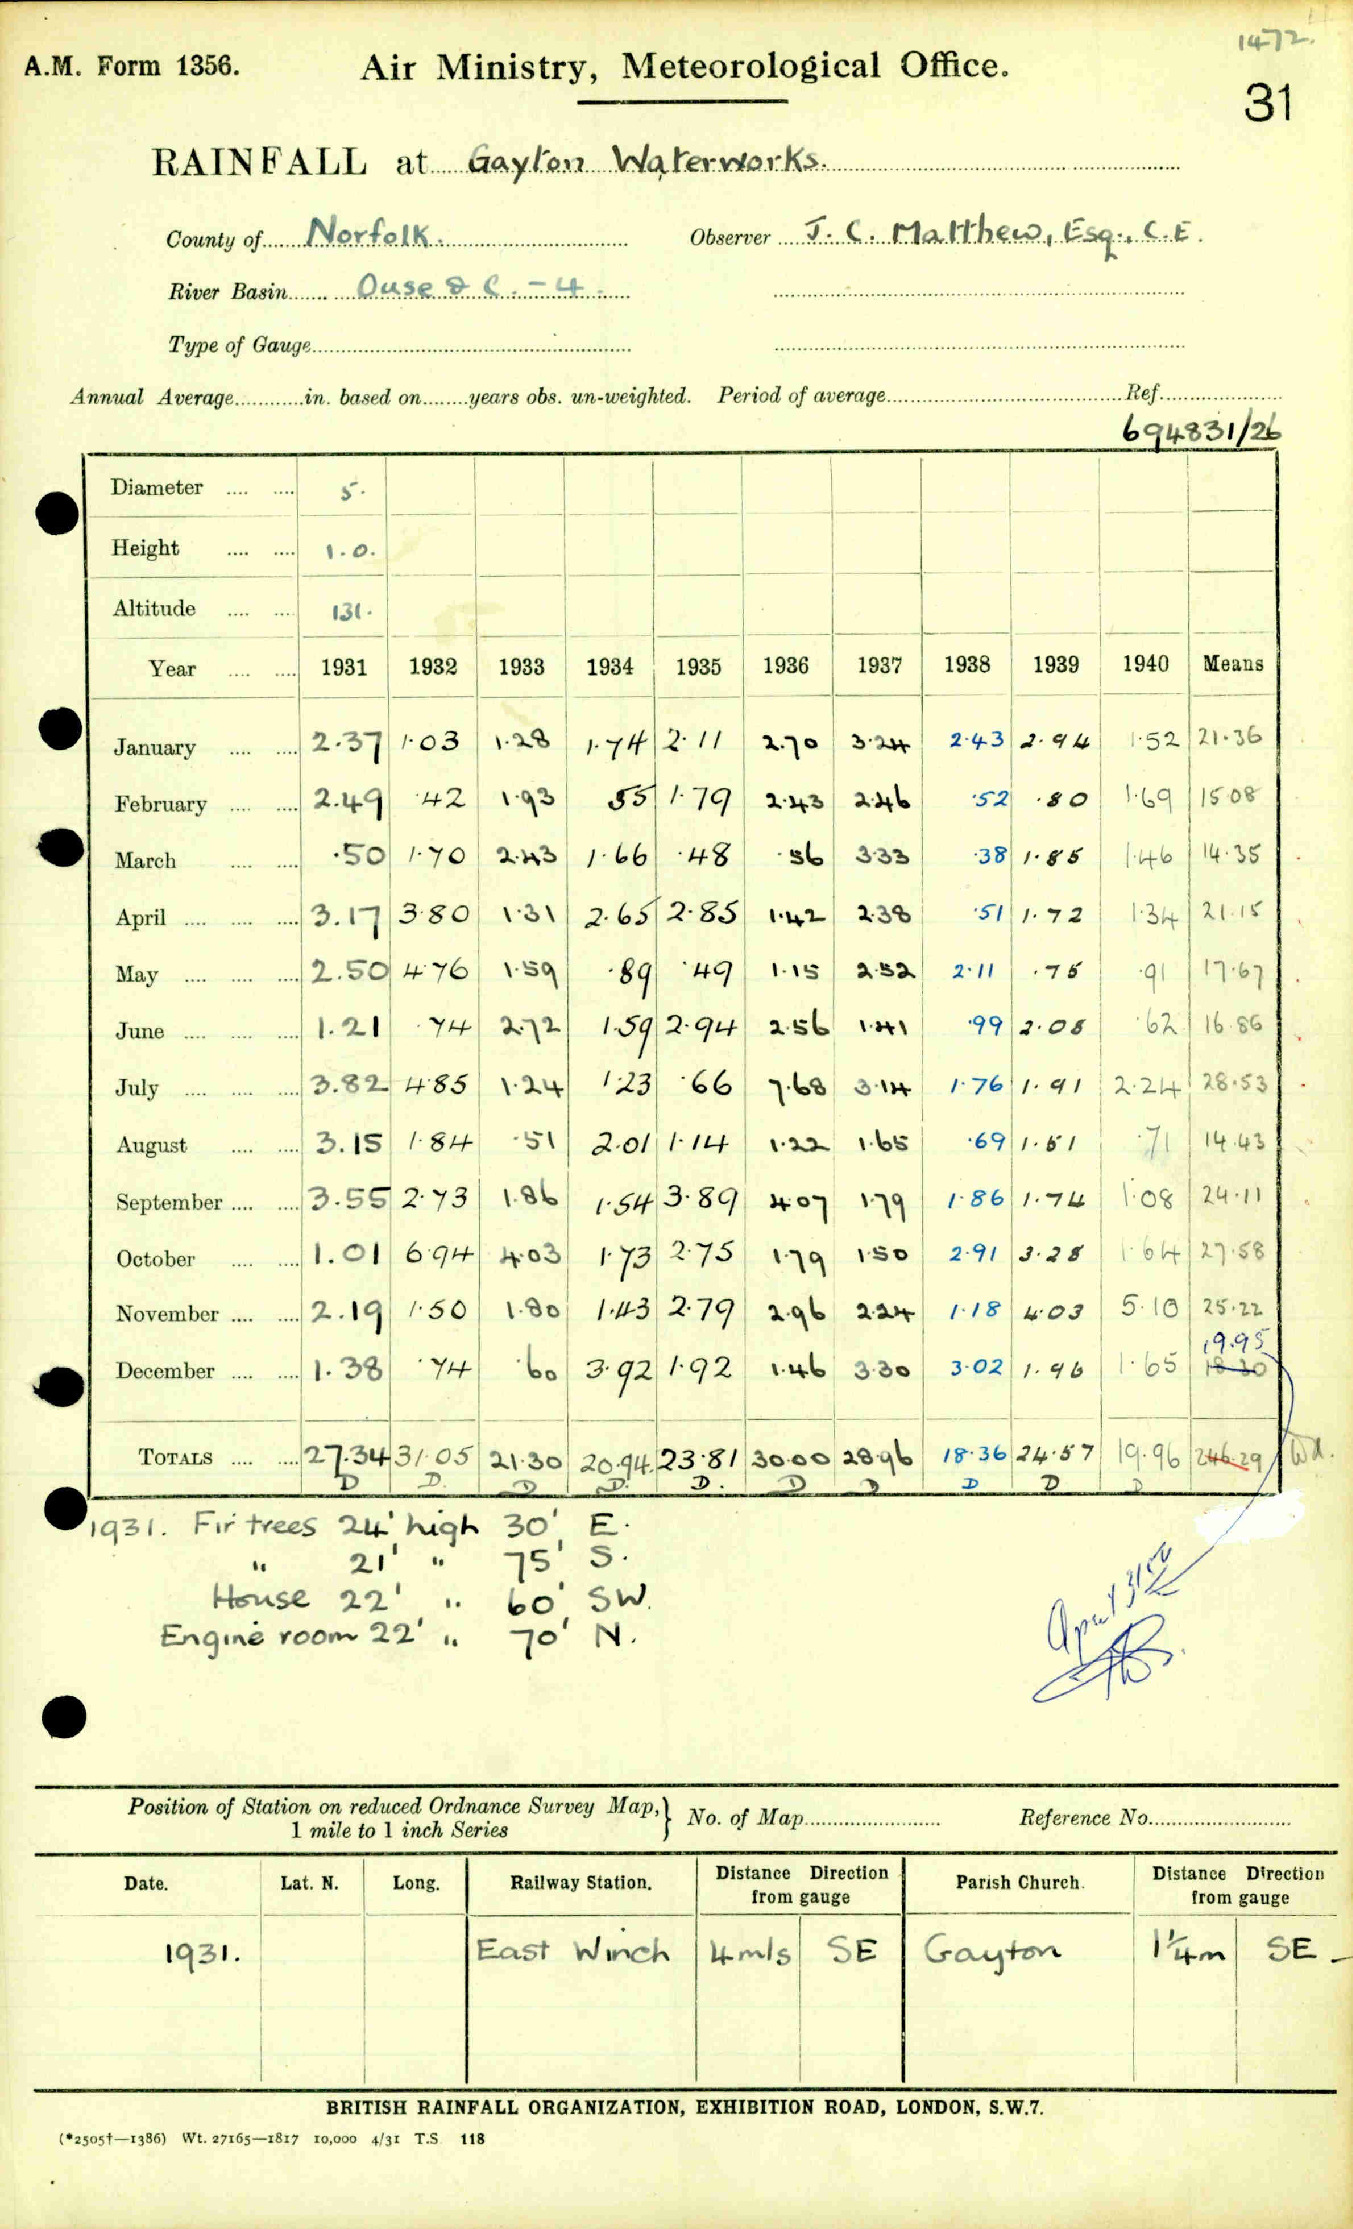 1472.
A.M. Form 1356. Air Ministry, Meteorological Office.
31
RAINFALL at Gayton Waterworks.
County of Norfolk. Observer J. C. Matthew, Esq., C.E.
River Basin Ouse & C. - 4.
Type of Gauge
Annual Average in. based on years obs. un-weighted. Period of average Ref.
694831/26
Diameter 5.
Height 1.0.
Altitude 131.
Year 1931 1932 1933 1934 1935 1936 1937 1938 1939 1940 Means
January 2.37 1.03 1.28 1.74 2.11 2.70 3.24 2.43 2.94 1.52 21.36
February 2.49 .42 1.93 55 1.79 2.43 2.46 .52 .80 1.69 15.08
March .50 1.70 2.43 1.66 .48 .56 3.33 .38 1.85 1.46 14.35
April 3.17 3.80 1.31 2.65 2.85 1.42 2.38 .51 1.72 1.34 21.15
May 2.50 4.76 1.59 .89 .49 1.15 2.52 2.11 .75 .91 17.67
June 1.21 .74 2.72 1.59 2.94 2.56 1.41 .99 2.08 .62 16.86
July 3.82 4.85 1.24 1.23 .66 7.68 3.14 1.76 1.91 2.24 28.53
August 3.15 1.84 .51 2.01 1.14 1.22 1.65 .69 1.51 .71 14.43
September 3.55 2.73 1.86 1.54 3.89 4.07 1.79 1.86 1.74 1.08 24.11
October 1.01 6.94 4.03 1.73 2.75 1.79 1.50 2.91 3.28 1.64 27.58
November 2.19 1.50 1.80 1.43 2.79 2.96 2.24 1.18 4.03 5.10 25.22
19.95
December 1.38 .74 .60 3.92 1.92 1.46 3.30 3.02 1.96 1.65 18.30
TOTALS 27.34 31.05 21.30 20.94 23.81 30.00 28.96 18.36 24.57 19.96 246.29 Wd.
D D. D D. D. D D D D D
1931. Fir trees 24' high 30' E.
" 21' " 75' S.
House 22' " 60' SW.
Engine room 22' " 70' N.
Position of Station on reduced Ordnance Survey Map, 1 mile to 1 inch Series } No. of Map Reference No.
Date. Lat. N. Long. Railway Station. Distance Direction from gauge Parish Church. Distance Direction from gauge
1931. East Winch 4mls SE Gayton 1¼m SE
BRITISH RAINFALL ORGANIZATION, EXHIBITION ROAD, LONDON, S.W.7.
(*2505†—1386) Wt. 27165—1817 10,000 4/31 T.S. 118